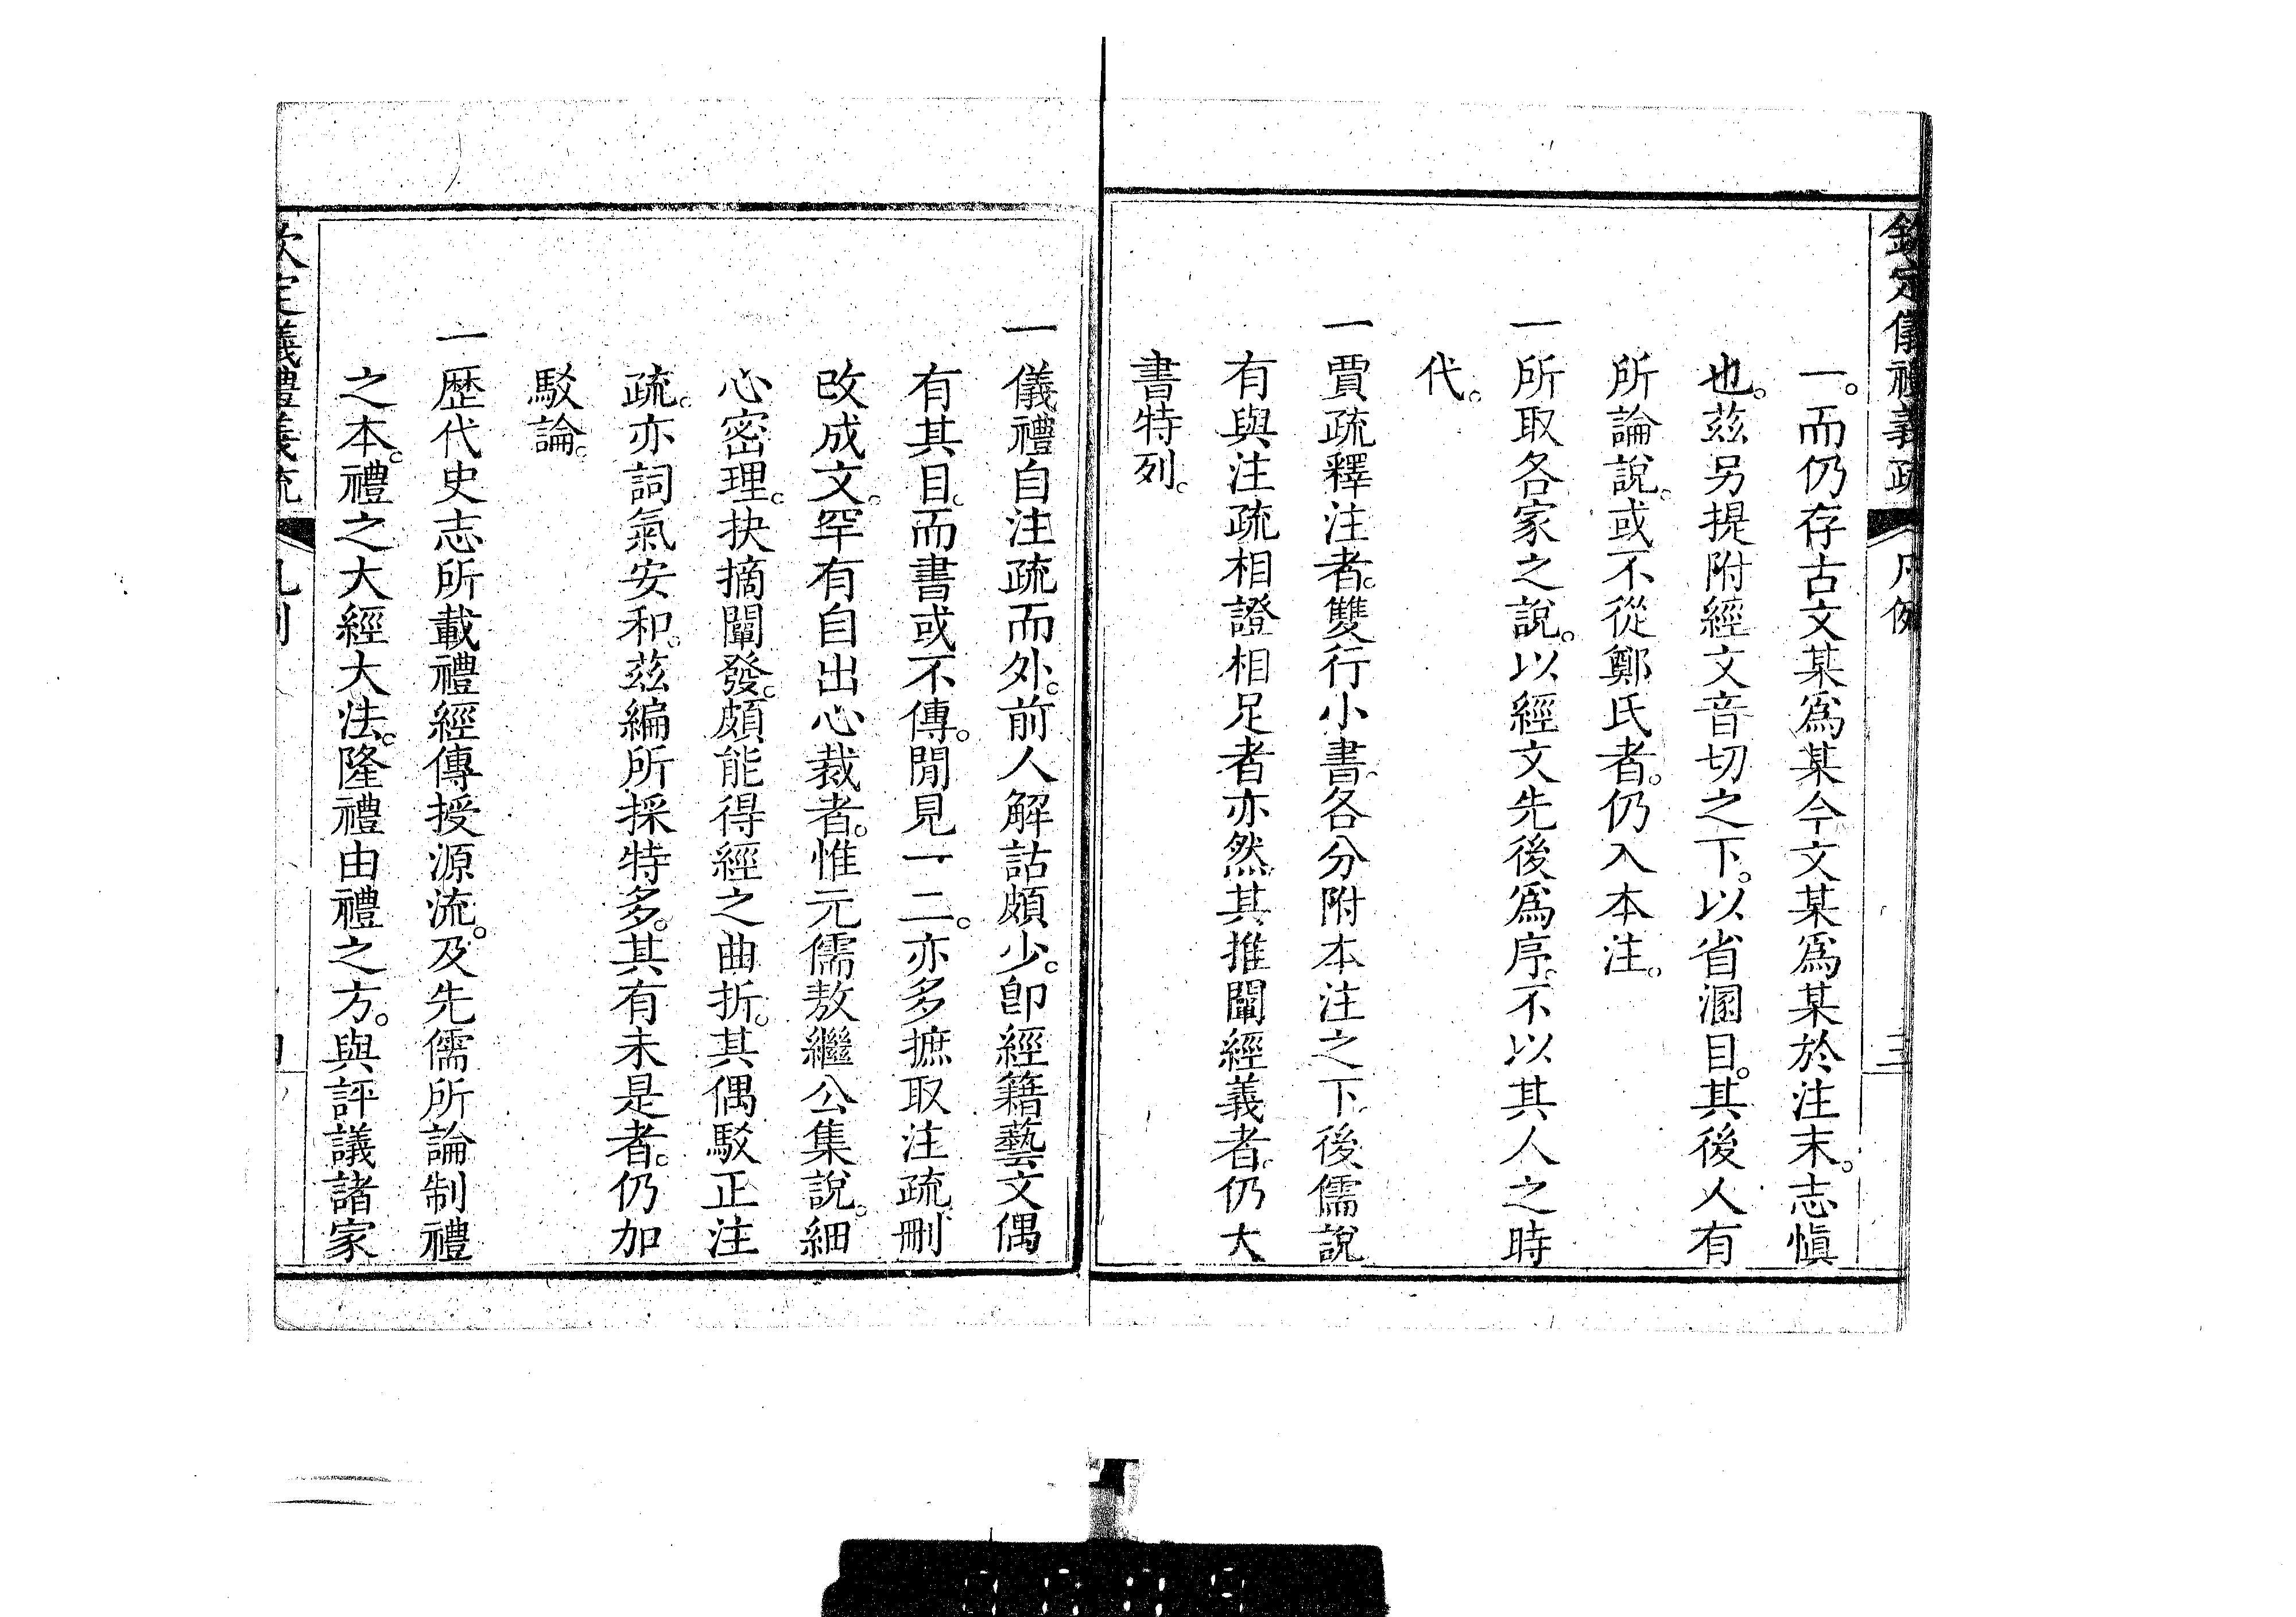 欽定儀禮義疏 凡例 三
一。而仍存古文某爲某今文某爲某於注末。志愼
也。茲另提附經文音切之下。以省溷目。其後人有
所論說。或不從鄭氏者。仍入本注。
一所取各家之說。以經文先後爲序。不以其人之時
代。
一賈疏釋注者。雙行小書。各分附本注之下。後儒說
有與注疏相證相足者亦然。其推闡經義者。仍大
書特列。
一儀禮自注疏而外。前人解詁頗少。卽經籍藝文偶
有其目。而書或不傳。閒見一二。亦多摭取注疏。刪
改成文。罕有自出心裁者。惟元儒敖繼公集說。細
心密理。抉摘闡發。頗能得經之曲折。其偶駁正注
疏。亦詞氣安和。茲編所採特多。其有未是者。仍加
駁論。
一歷代史志所載禮經傳授源流。及先儒所論制禮
之本。禮之大經大法。隆禮由禮之方。與評議諸家
欽定儀禮義疏 凡例